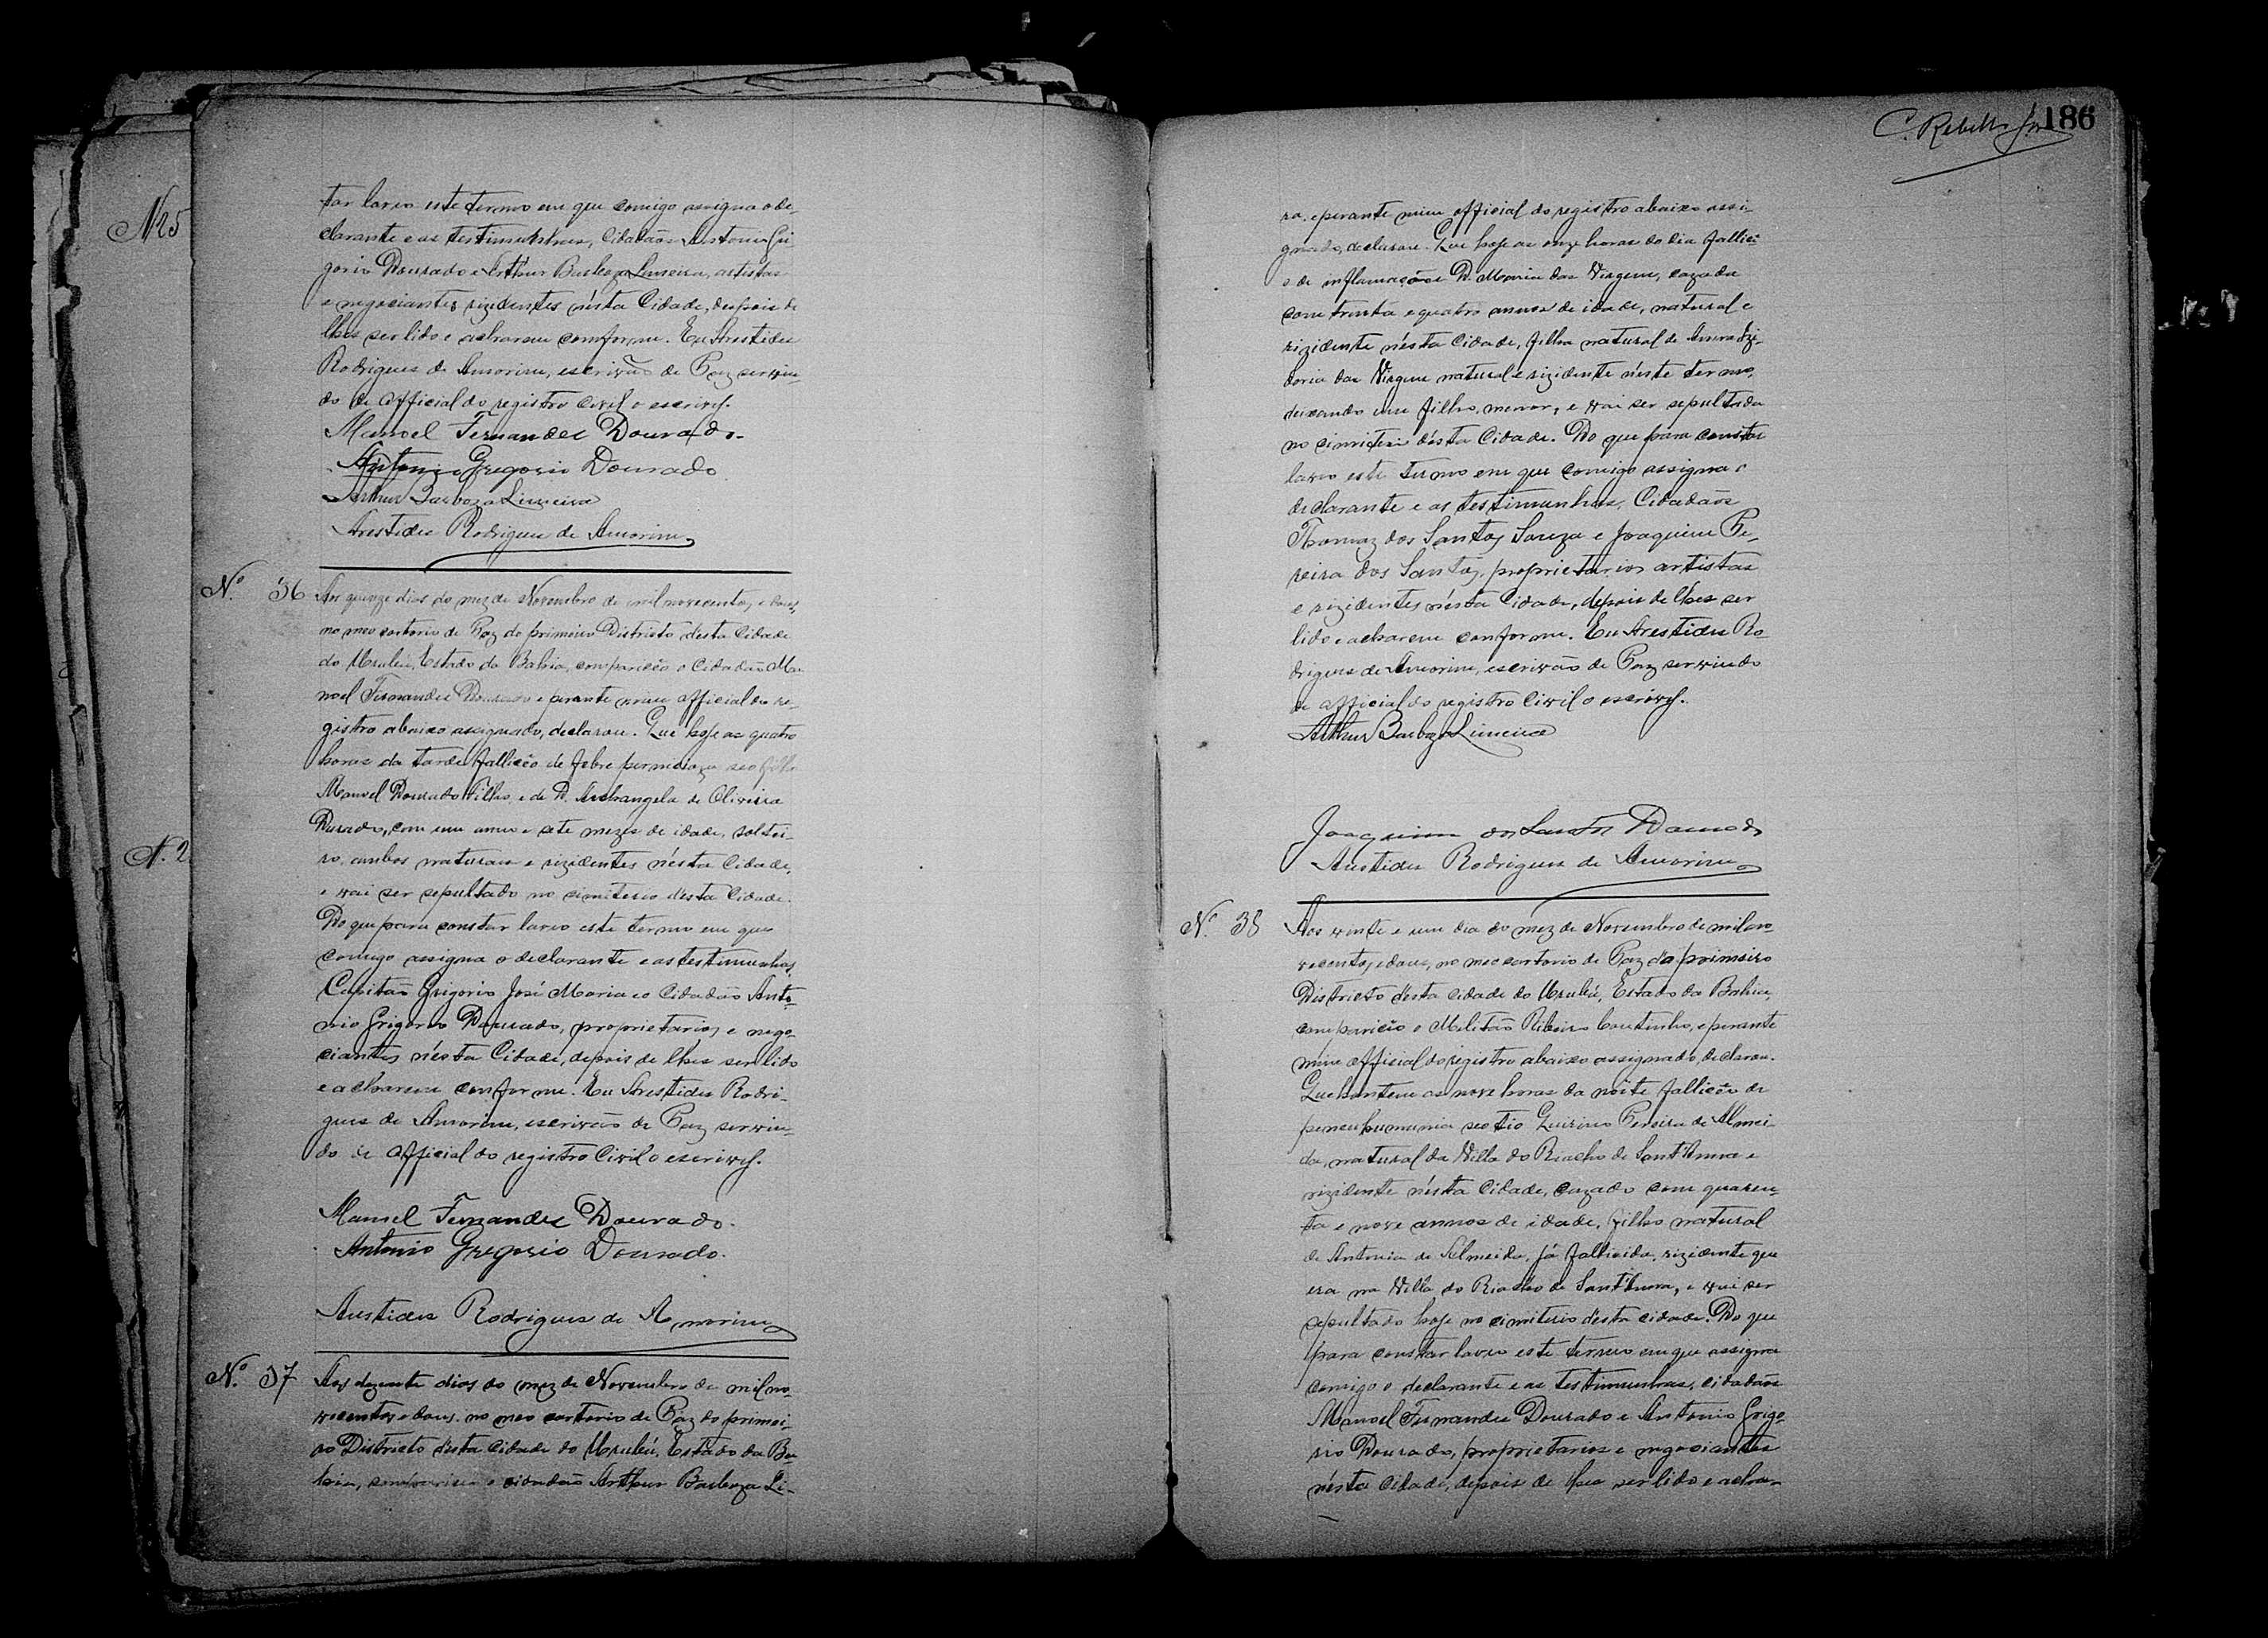 Nº 5
N. 2
tar lavro este termo em que comigo assigna o de-
clarante e as testimunhas, Cidadãos Antonio Gri
gorio Dourado e Arthur Barboza Limeira, artistas
e negociantes rizidentes nésta Cidade, depois de
lhes ser lido e acharem comforme. Eu Arestides
Rodrigues de Amorim, escrivão de Paz servin-
do de Official do registro Civil o escrevy.
Manoel Fernandes Dourado.
Antonio Gregorio Dourado
Arthur Barboza Limeira
Arestides Rodrigues de Amorim
Nº 36 Aos quinze dias do mez de Novembro de mil novecentos e dous,
no meo cartorio de Paz do primeiro Districto désta Cidade
do Urubú, Estado da Bahia, compariceo o Cidadão Ma-
noel Fernandes Dourado e perante mim official do re-
gistro abaixo assignado, declarou. Que hoje as quatro
horas da tarde falliceo de febre perniciosa seo filho
Manoel Dourado Filho, e de D. Archangela de Oliveira
Durado, com um anno e sete mezes de idade, soltei-
ro, ambos naturais e rizidentes nésta Cidade,
e vai ser sepultado no cimiterio désta Cidade.
Do que para constar lavro este termo em que
comigo assigna o declarante e as testimunhas,
Capitão Grigorio José Maria e o Cidadão Anto-
nio Grigorio Dourado, proprietarios e nego-
ciantes nésta Cidade, depois de lhes ser lido
e acharem comforme. Eu Arestides Rodri-
gues de Amorim, escrivão de Paz servin-
do de Official do registro Civil o escrevy.
Manoel Fernandes Dourado.
Antonio Gregorio Dourado.
Arestides Rodrigues de Amorim
Nº 37 Aos dezesete dias do mez de Novembro de mil no-
vecentos e dous, no meo cartorio de Paz do primei-
ro Districto désta Cidade do Urubú, Estado da Ba-
hia, compariceo o cidadão Arthur Barboza Li-
C. Rebello Jor 186
ra, e perante mim official do registro abaixo assi-
gnado, declarou. Que hoje as onze horas do dia fallice
o de inflamação D. Maria das Virgem, cazada
com trinta e quatro annos de idade, natural e
rizidente nésta Cidade, filha natural de
das Virgem natural e rizidente néste termo,
deixando um filho, menor, e vai ser sepultada
no cimiterio désta Cidade. Do que para constar
lavro este termo em que comigo assigna o
declarante e as testimunhas, Cidadãos
Thomaz dos Santos Souza e Joaquim Pe-
reira dos Santos, proprietarios artistas
e rizidentes nésta Cidade, depois de lhes ser
lido e acharem comforme. Eu Arestides Ro-
drigues de Amorim, escrivão de Paz servindo
de official do registro Civil o escrevy.
Arthur Barboza Limeira
Joaquim dos Santos Dourado
Arestides Rodrigues de Amorim
Nº 38 Aos vinte e um dia do mez de Novembro de mil no-
vecentos e dous, no meo cartorio de Paz do primeiro
Districto désta Cidade do Urubú, Estado da Bahia,
compariceo o Militão Ribeiro Coutinho, e perante
mim official do registro abaixo assignado declarou.
Que hontem as nove horas da noite falliceo de
seo tio Quirino Pereira de Almei-
da, natural da Villa do Riacho de Sant'Anna e
rizidente nésta Cidade, cazado com quaren-
ta e nove annos de idade, filho natural
de Antonia de Almeida, já fallicida, rizidente que
era na Villa do Riacho de Sant'Anna, e vai ser
sepultado hoje no cimiterio désta cidade. Do que
para constar lavro este termo em que assigna
comigo o declarante e as testimunhas, cidadãos
Manoel Fernandes Dourado e Antonio Grigo-
rio Dourado, proprietarios e negociantes
nésta Cidade, depois de lhes ser lido e acha-